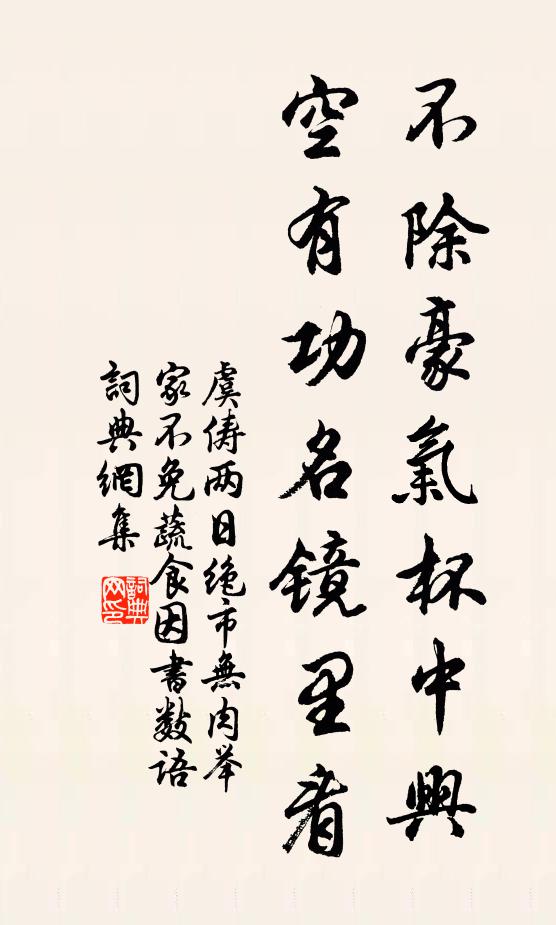 不除豪氣杯中興
空有功名镜里看
虞俦两日绝市無肉举
家不免蔬食因書数语
詞典網集
詞典
网印